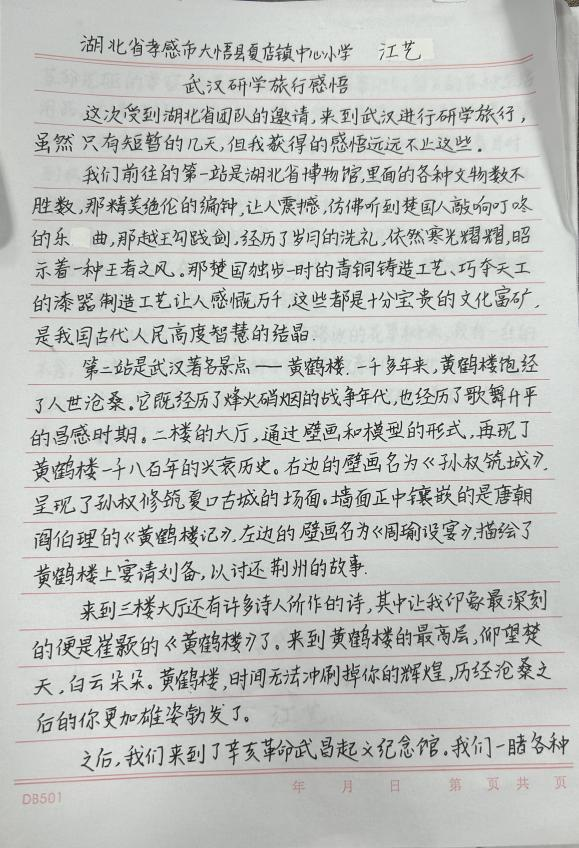 湖北省孝感市大悟县夏店镇中心小学 江艺
武汉研学旅行感悟
这次受到湖北省团队的邀请,来到武汉进行研学旅行,
虽然只有短暂的几天,但我获得的感悟远远不止这些。
我们前往的第一站是湖北省博物馆,里面的各种文物数不
胜数,那精美绝伦的编钟,让人震撼,仿佛听到楚国人敲响叮咚
的乐 曲,那越王勾践剑,经历了岁月的洗礼,依然寒光熠耀,昭
示着一种王者之风。那楚国独步一时的青铜铸造工艺、巧夺天工
的漆器制造工艺让人感慨万千,这些都是十分宝贵的文化富矿,
是我国古代人民高度智慧的结晶.
第二站是武汉著名景点——黄鹤楼.一千多年来,黄鹤楼饱经
了人世沧桑。它既经历了烽火硝烟的战争年代,也经历了歌舞升平
的昌盛时期。二楼的大厅,通过壁画和模型的形式,再现了
黄鹤楼一千八百年的兴衰历史。右边的壁画名为《孙权筑城》,
呈现了孙权修筑夏口古城的场面。墙面正中镶嵌的是唐朝
阎伯理的《黄鹤楼记》,左边的壁画名为《周瑜设宴》,描绘了
黄鹤楼上宴请刘备,以讨还荆州的故事.
来到三楼大厅还有许多诗人所作的诗,其中让我印象最深刻
的便是崔颢的《黄鹤楼》了。来到黄鹤楼的最高层,仰望楚
天,白云朵朵。黄鹤楼,时间无法冲刷掉你的辉煌,历经沧桑之
后的你更加雄姿勃发了。
之后,我们来到了辛亥革命武昌起义纪念馆。我们一睹各种
DB501 年 月 日 第 页 共 页